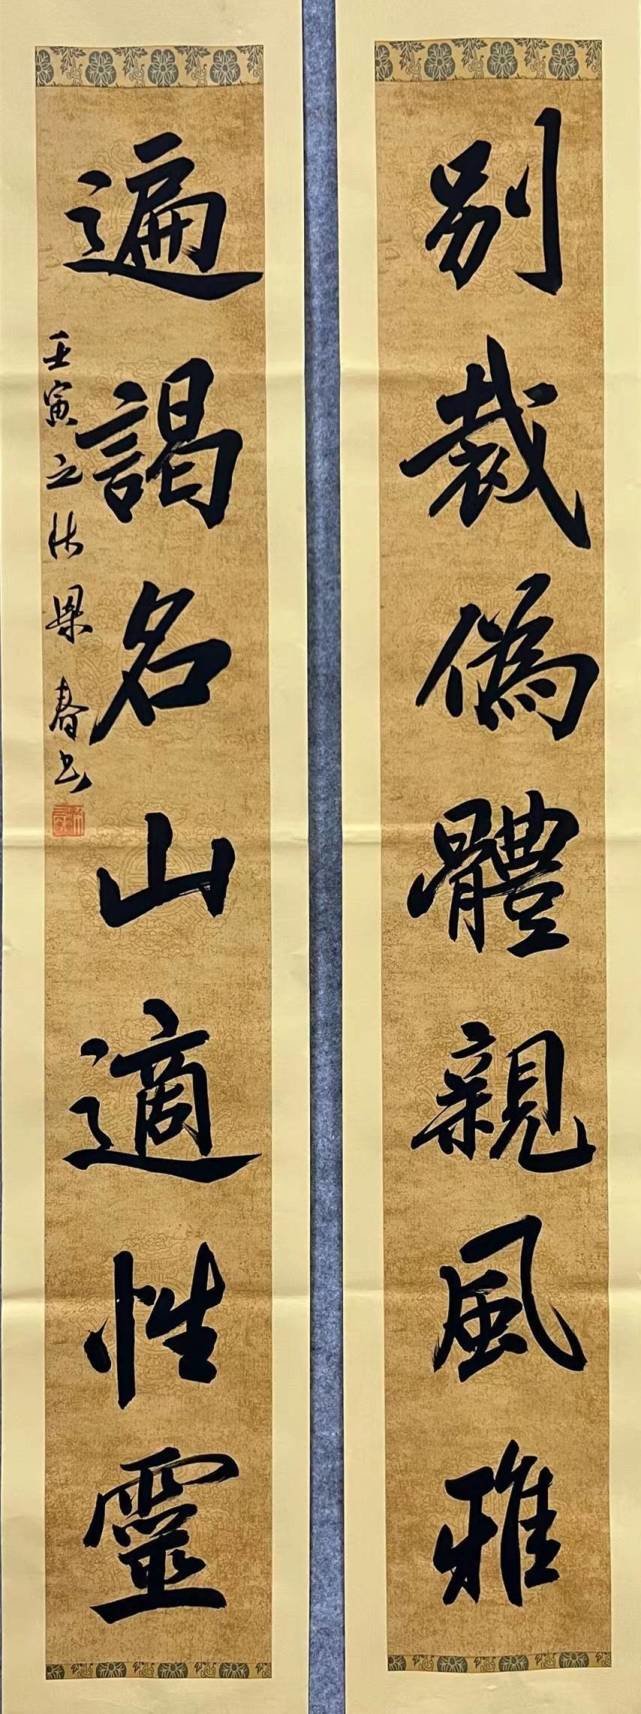 別裁偽體親風雅
遍謁名山適性靈
壬寅之秋梁春书